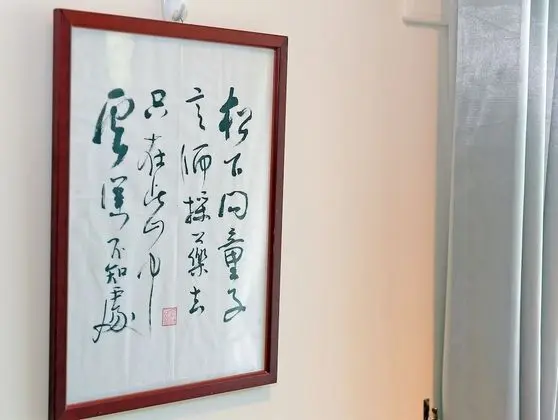 松下问童子
言师採药去
只在此山中
云深不知處